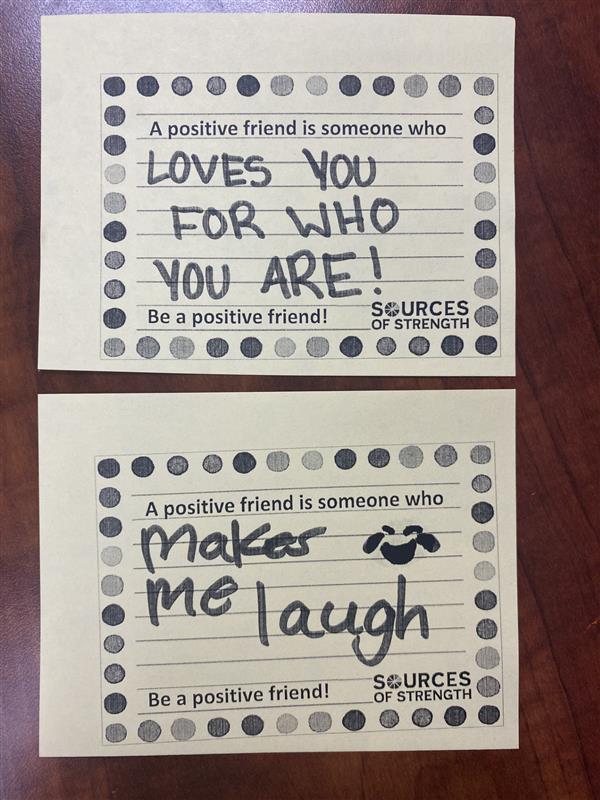 A positive friend is someone who
LOVES YOU
FOR WHO
YOU ARE!
Be a positive friend!
SOURCES
OF STRENGTH
A positive friend is someone who
makes
me laugh
Be a positive friend!
SOURCES
OF STRENGTH